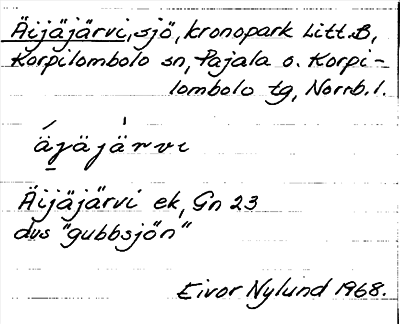 Äijäjärvi, sjö, kronopark Litt. B,
Korpilombolo sn, Pajala o. Korpi-
lombolo tg, Norrb. l.
äjäjärvi
Äijäjärvi ek, Gn 23
dvs "gubbsjön"
Eivor Nylund 1968.